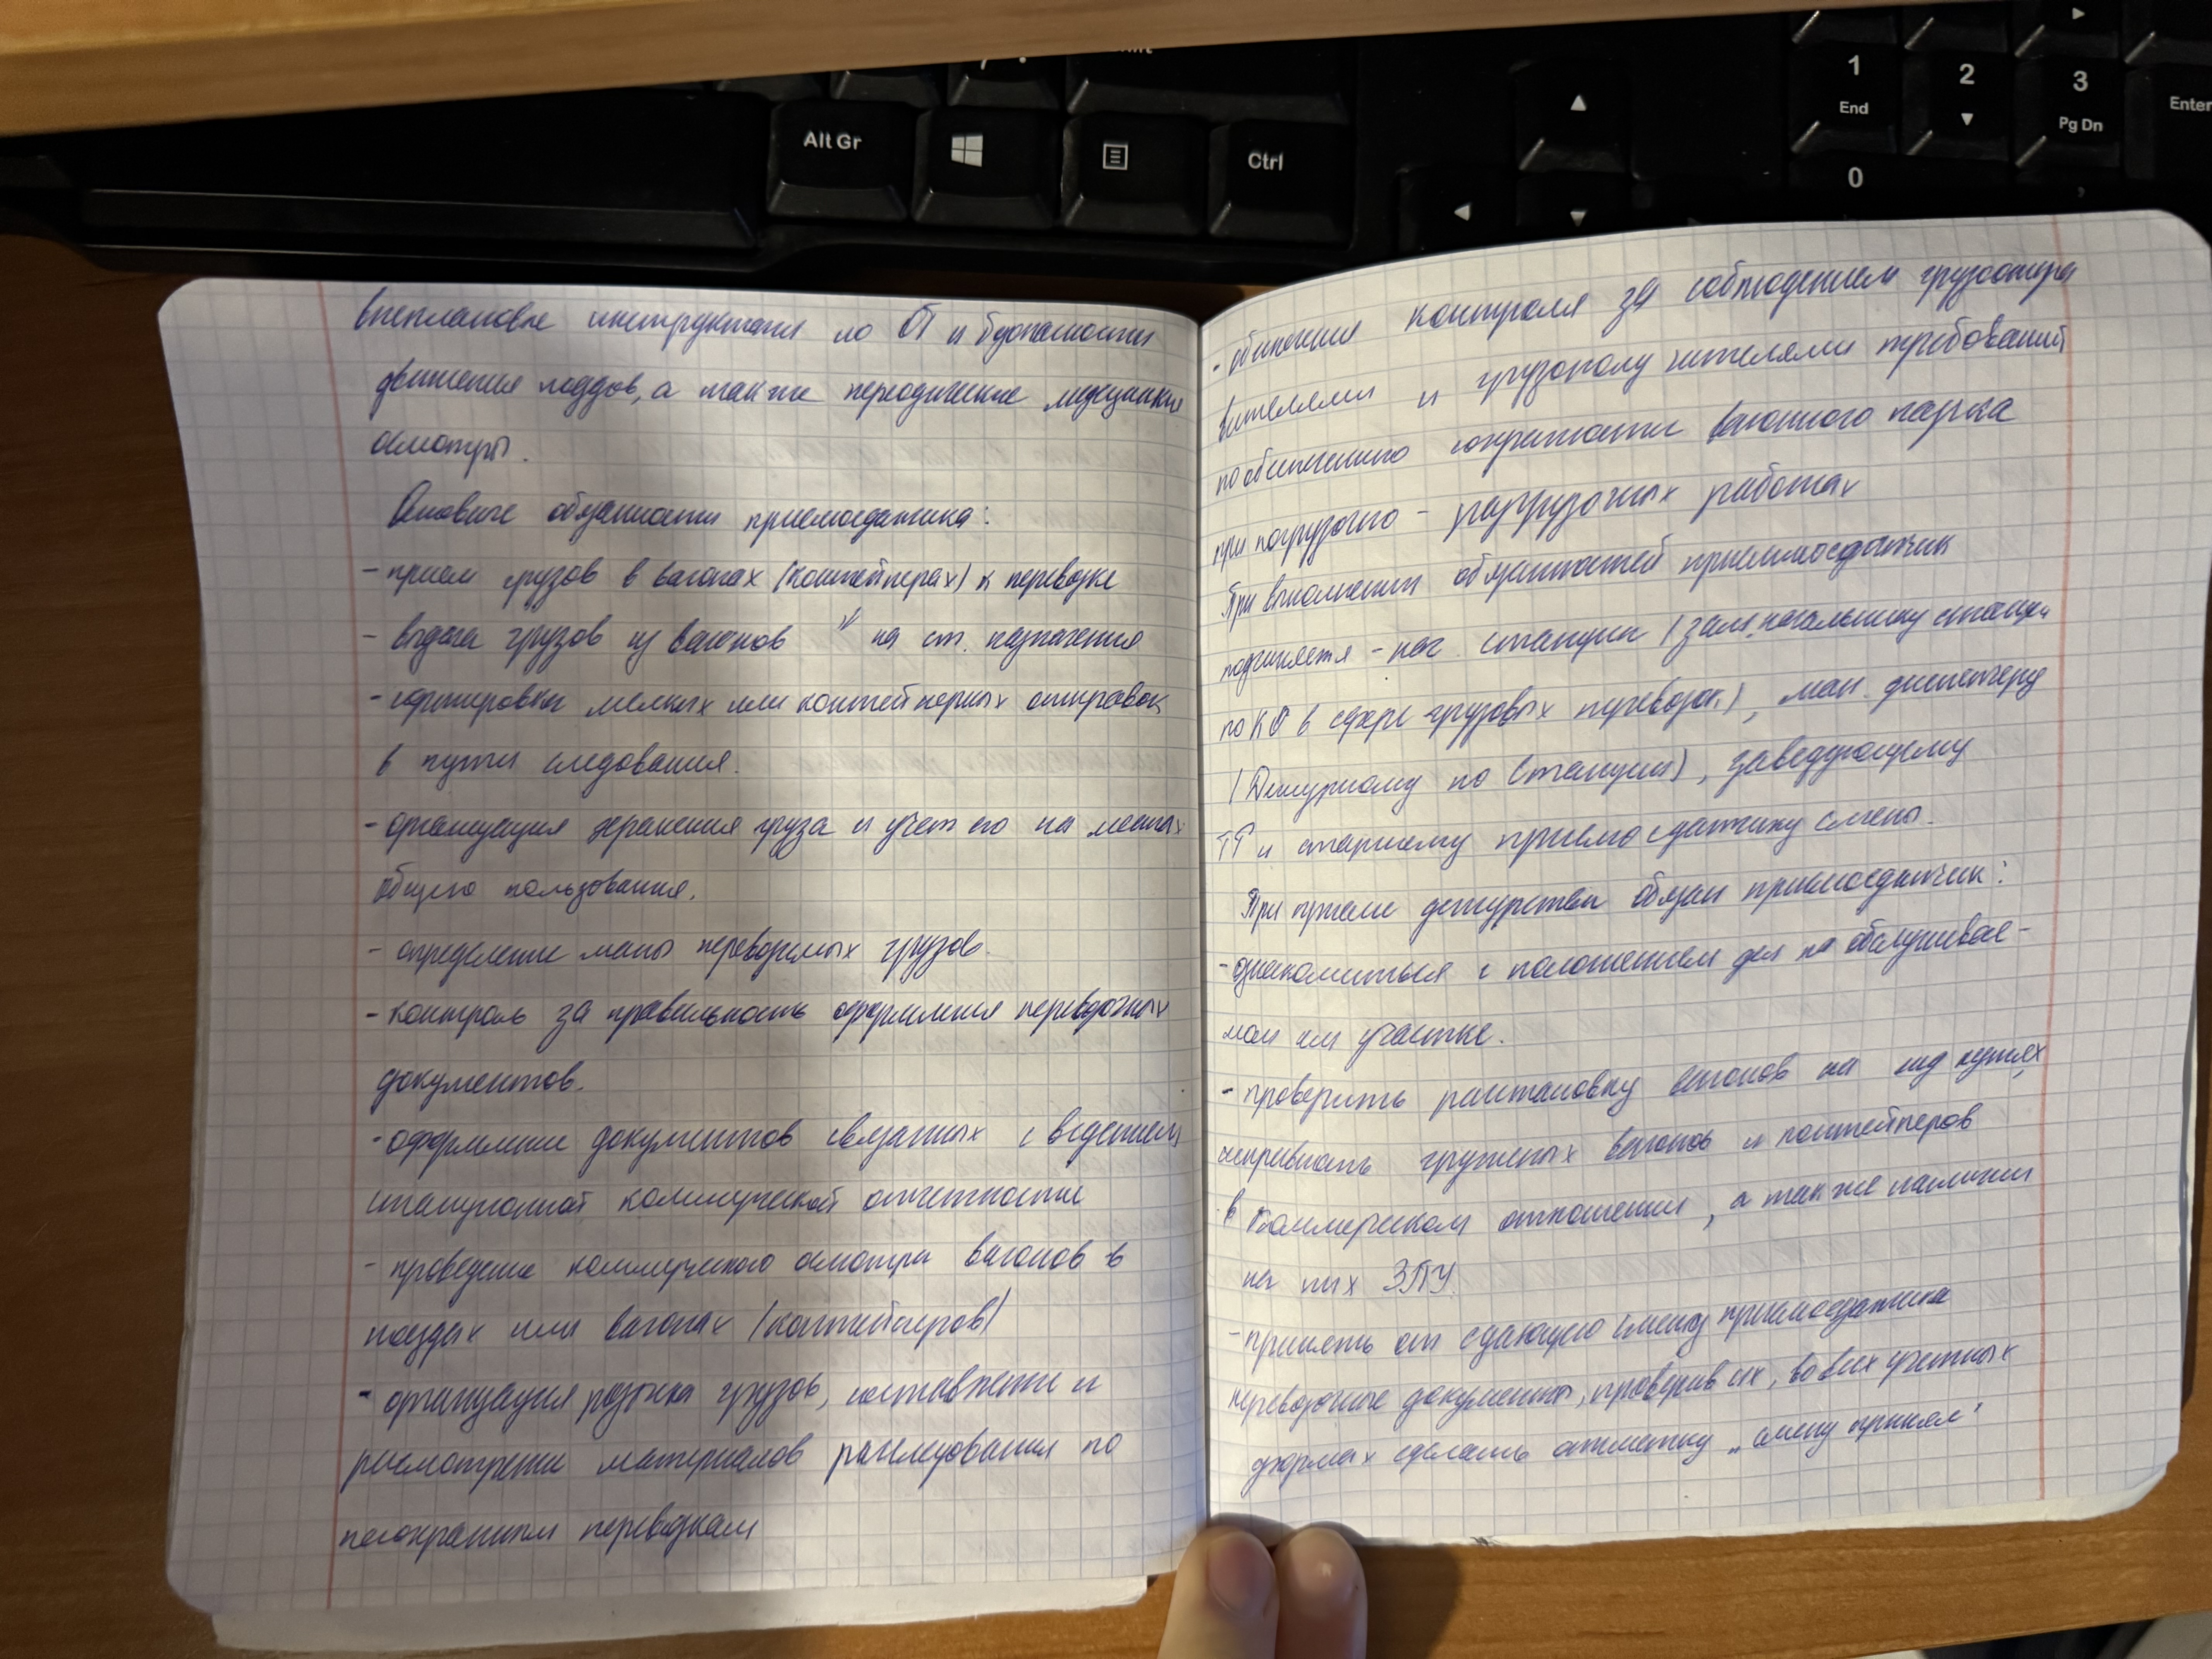 Alt Gr
Ctrl
1
End
2
3
Pg Dn
Enter
0
внеплановые инструктажи по ОТ и безопасности
движения поездов, а также периодические медецинские
осмотры.
Основные обязанности приемосдатчика:
- прием грузов в вагонах (контейнерах) к перевозке
- выдача грузов из вагонов " на ст. назначения
- сортировка мелких или контейнерных отправок
в пути следования.
- организация хранения груза и учет его на местах
общего пользования.
- определение массы перевозимых грузов.
- контроль за правильность оформления перевозочных
документов.
- оформление документов связанных с ведением
станционной коммерческой отчетности
- проведение коммерческого осмотра вагонов в
поездах или вагонах (контейнеров)
- организация розыска грузов, составление и
рассмотрение материалов расследования по
несохранным перевозкам
- обеспечения контроля за соблюдением грузоотпра
вителями и грузополучателями требований
по обеспечению сохранности вагонного парка
при погрузочно - разгрузочных работах
При выполнении обязанностей приемосдатчик
подчиняется - нач. станции (зам. начальнику станции
по КО в сфере грузовых перевозок), ман. диспетчеру
(Дежурному по станции), заведующему
и старшему приемосдатчику смены.
При приеме дежурства обязан приемосдатчик:
- ознакомиться с положением дел на обслуживае-
мом им участке.
- проверить расстановку вагонов на путях
исправность груженых вагонов и контейнеров
в коммерческом отношении, а также наличии
на них ЗПУ.
- принять от сдающего смену приемосдатчика
перевозочные документы, проверив их, во всех учетных
формах сделать отметку „смену принял"